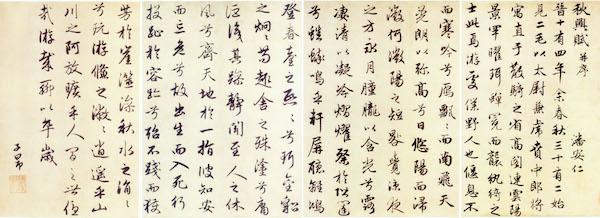 秋興賦 并序
潘安仁
晉十有四年余春秋三十有二始
見二毛以太尉掾兼虎賁中郎將
寓直于散騎之省高閣連雲陽
景罕曜珥蟬冕而襲紈綺之
士此焉遊處僕野人也偃息不
而寒吟兮鴈飄飄而南飛天
晃朗以彌高兮日悠陽而浸
微何微陽之短晷覺涼夜
之方永月朣朧以含光兮露
淒清以凝冷熠燿粲於階闥
兮蟋蟀鳴乎軒屏聽離鴻
登春臺之熙熙兮珥金貂
之炯炯苟趣舍之殊塗兮庸
詎識其躁靜聞至人之休
風兮齊天地於一指彼知安
而忘危兮故出生而入死行
投趾於容跡兮殆不踐而獲
芳於崖澨澡秋水之涓涓
兮玩游鯈之潎潎逍遙乎山
川之阿放曠乎人間之世優
哉游哉聊以卒歲
子昂